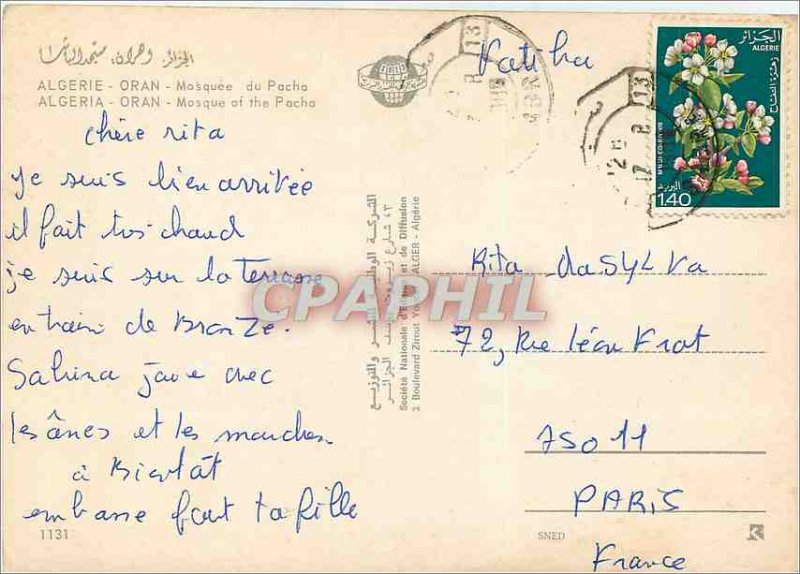 الجزائر، وهران، مسجد الباشا
ALGERIE - ORAN - Mosquée du Pacha
ALGERIA - ORAN - Mosque of the Pacha
chère rita
je suis bien arrivée
il fait trés chaud
je suis sur la terrasse
en train de Bronze.
Sabrina joue avec
les ânes et les mouches
à Bientât
embrasse fort ta fille
1131
الشركة الوطنية للنشر والتوزيع
Société Nationale d'Edition et de Diffusion
3, Boulevard Zirout Youcef ALGER - Algérie
SNED
Katiha
الجزائر
ALGERIE
زهرة التفاح
البريد
1.40
Rita daSYLVA
72, Rue léon Frot
75011
PARIS
France
CPAPHIL